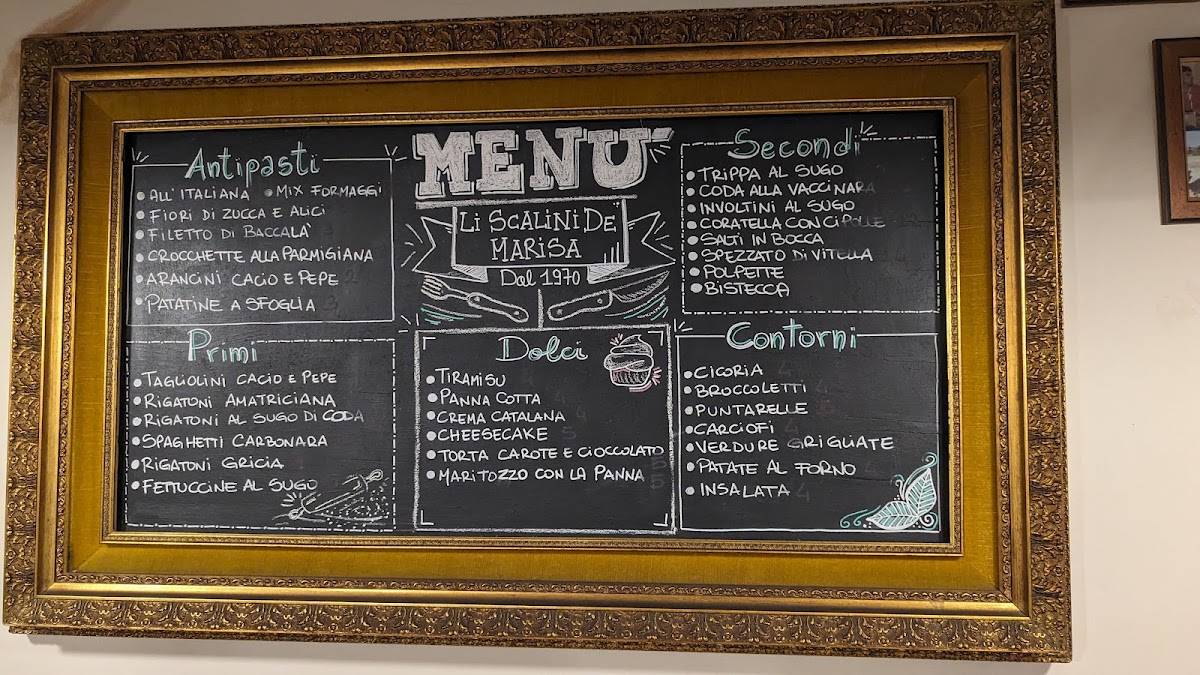 MENU
LI SCALINI DE
MARISA
Dal 1970
Antipasti
ALL'ITALIANA MIX FORMAGGI
FIORI DI ZUCCA E ALICI
FILETTO DI BACCALA'
CROCCHETTE ALLA PARMIGIANA
ARANCINI CACIO E PEPE
PATATINE A SFOGLIA
Primi
TAGLIOLINI CACIO E PEPE
RIGATONI AMATRICIANA
RIGATONI AL SUGO DI CODA
SPAGHETTI CARBONARA
RIGATONI GRICIA
FETTUCCINE AL SUGO
Dolci
TIRAMISU
PANNA COTTA
CREMA CATALANA
CHEESECAKE
TORTA CAROTE E CIOCCOLATO
MARITOZZO CON LA PANNA
Secondi
TRIPPA AL SUGO
CODA ALLA VACCINARA
INVOLTINI AL SUGO
CORATELLA CON CIPOLLE
SALTI IN BOCCA
SPEZZATO DI VITELLA
POLPETTE
BISTECCA
Contorni
CICORIA
BROCCOLETTI
PUNTARELLE
CARCIOFI
VERDURE GRIGLIATE
PATATE AL FORNO
INSALATA